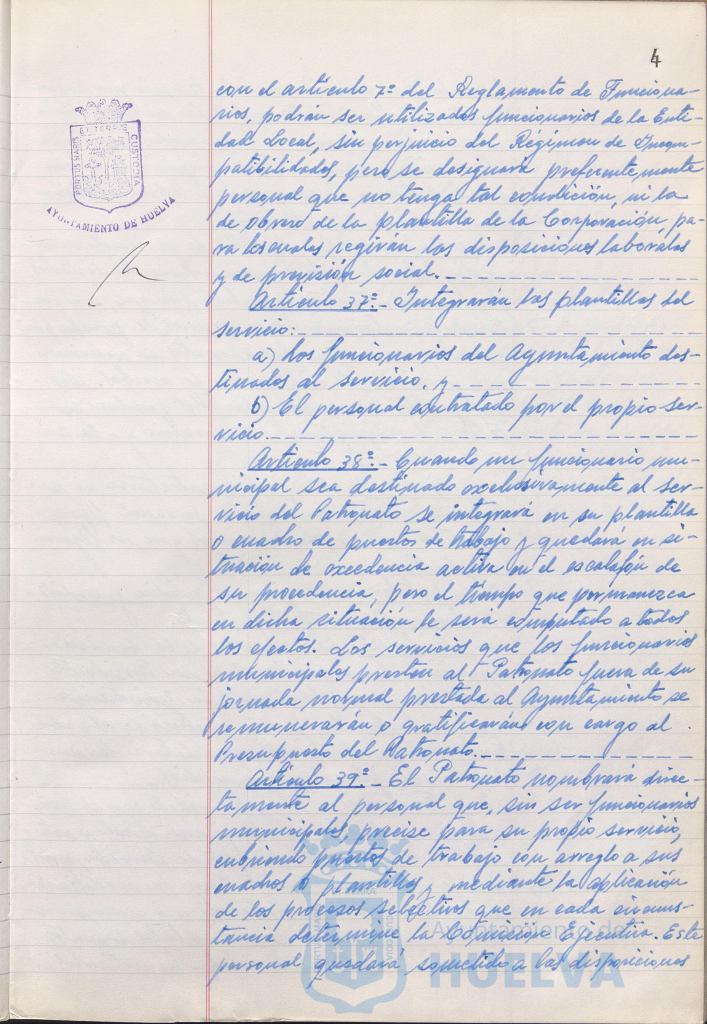 4
con el artículo 7º del Reglamento de Funciona-
rios, podrán ser utilizados funcionarios de la Enti-
dad Local, sin perjuicio del Régimen de Incom-
patibilidades, pero se designará preferentemente
personal que no tenga tal condición, ni la
de obrero de la plantilla de la Corporación, pa-
ra los cuales regirán las disposiciones laborales
y de previsión social.
Artículo 37º.- Integrarán las plantillas del
servicio:
a) Los funcionarios del Ayuntamiento des-
tinados al servicio, y
b) El personal contratado por el propio ser-
vicio.
Artículo 38º.- Cuando un funcionario mu-
nicipal sea destinado exclusivamente al ser-
vicio del Patronato se integrará en su plantilla
o cuadro de puestos de trabajo y quedará en si-
tuación de excedencia activa en el escalafón de
su procedencia, pero el tiempo que permanezca
en dicha situación le sera computado a todos
los efectos. Los servicios que los funcionarios
municipales presten al Patronato fuera de su
jornada normal prestada al Ayuntamiento se
remunerarán o gratificarán con cargo al
Presupuesto del Patronato.
Artículo 39º.- El Patronato nombrará direc-
tamente al personal que, sin ser funcionarios
municipales, precise para su propio servicio,
cubriendo puestos de trabajo con arreglo a sus
cuadros o plantillas y mediante la aplicación
de los procesos selectivos que en cada circuns-
tancia determine la Comisión Ejecutiva. Este
personal quedará sometido a las disposiciones
PORTUS MARIS ET TERRE CUSTODIA
AYUNTAMIENTO DE HUELVA
Ayuntamiento de
HUELVA